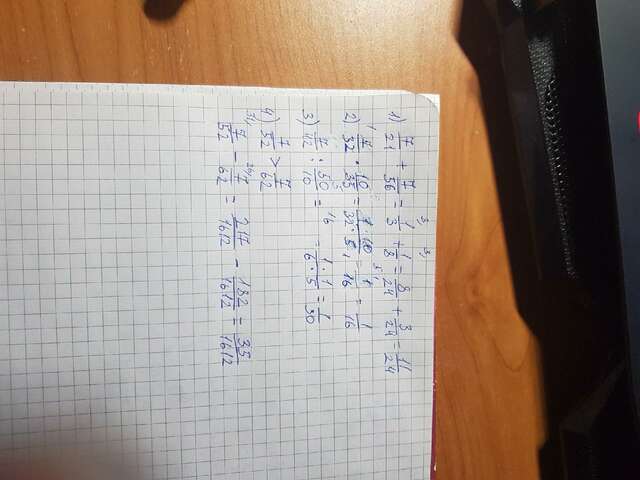 1) 7/21 + 7/56 = 1/3 + 1/8 = 8/24 + 3/24 = 11/24
2) 7/32 · 10/35 = 1·10/32·5 = 1/16 = 1/16
3) 7/42 : 50/10 = 1·1/6·5 = 1/30
4) 7/52 > 7/62
7/52 - 7/62 = 217/1612 - 182/1612 = 35/1612